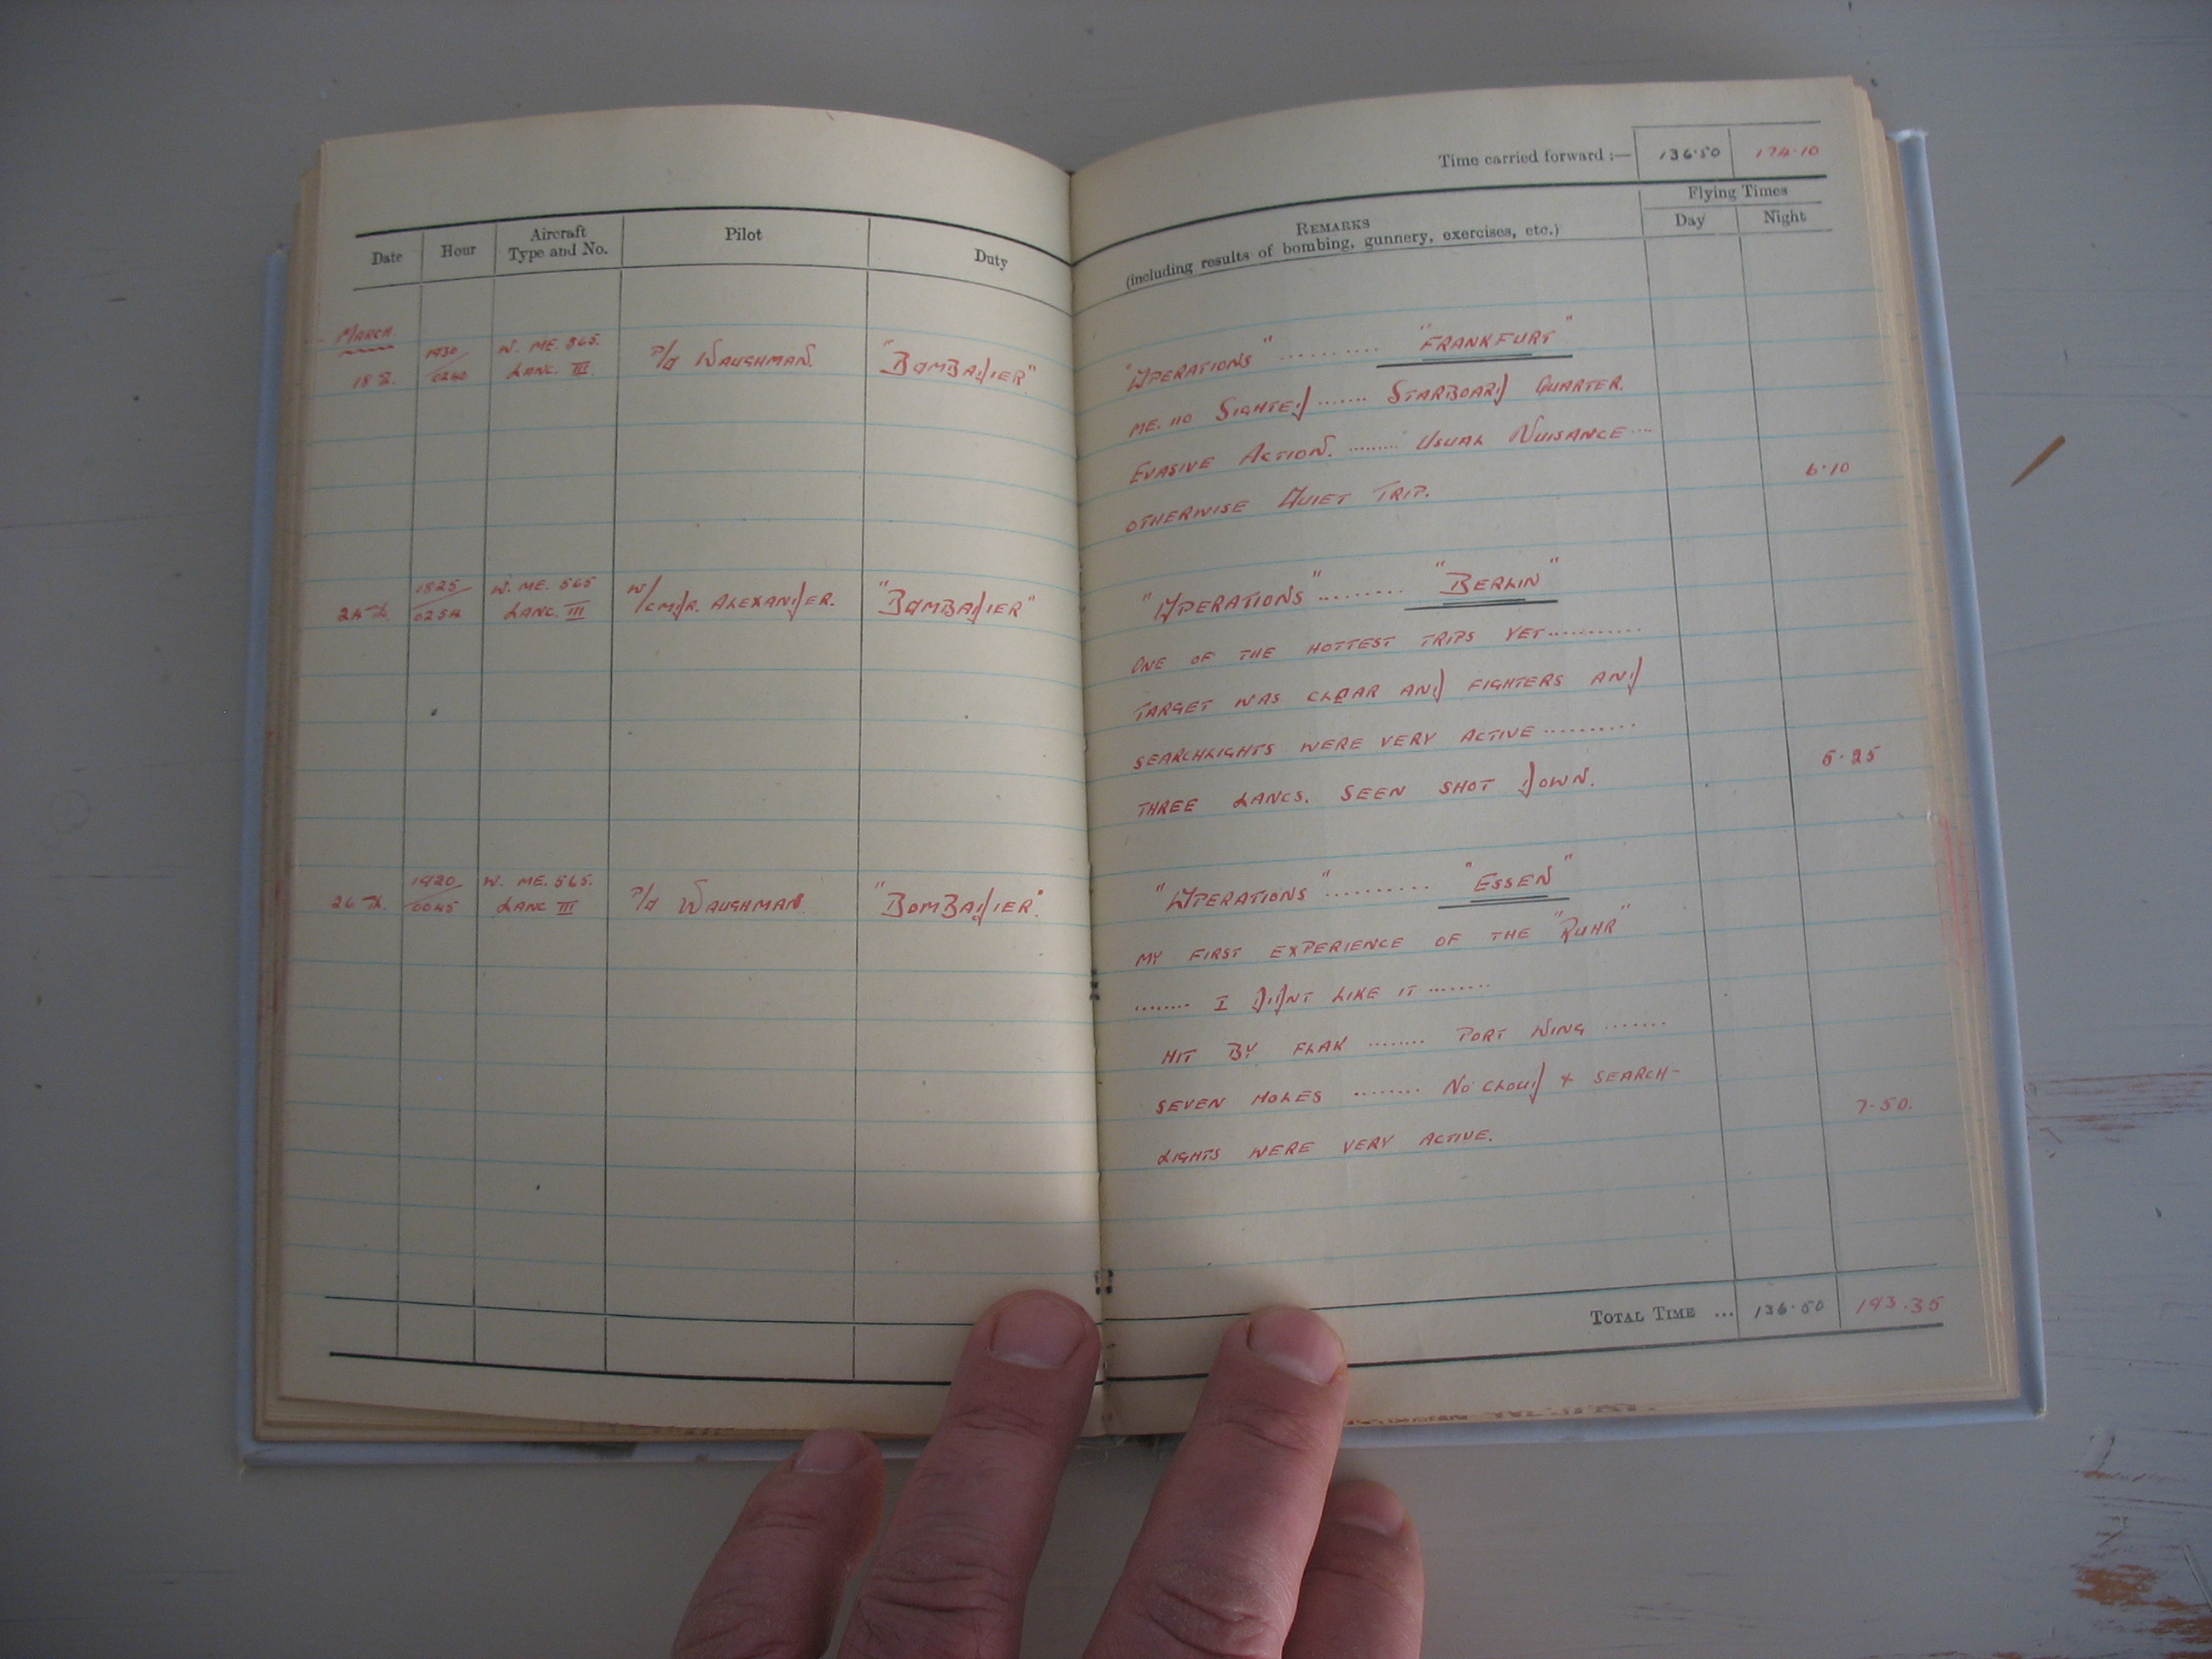 Time carried forward :— 136·50 174·10
Date Hour Aircraft Type and No. Pilot Duty
REMARKS
(including results of bombing, gunnery, exercises, etc.)
Flying Times
Day Night
MARCH
18TH. 1930/0240 W. ME. 565. LANC. III. P/O WAUGHMAN. "BOMBADIER"
"OPERATIONS" .......... "FRANKFURT"
ME. 110 SIGHTED ....... STARBOARD QUARTER.
EVASIVE ACTION. ........ USUAL NUISANCE ...
OTHERWISE QUIET TRIP.
6·10
24TH. 1825/0254 W. ME. 565 LANC. III W/CMDR. ALEXANDER. "BOMBADIER"
"OPERATIONS" ......... "BERLIN"
ONE OF THE HOTTEST TRIPS YET ..........
TARGET WAS CLEAR AND FIGHTERS AND
SEARCHLIGHTS WERE VERY ACTIVE ..........
THREE LANCS. SEEN SHOT DOWN.
5·25
26TH. 1920/0045 W. ME. 565. LANC III P/O WAUGHMAN. "BOMBADIER".
"OPERATIONS" .......... "ESSEN"
MY FIRST EXPERIENCE OF THE "RUHR"
........ I DIDNT LIKE IT .......
HIT BY FLAK ........ PORT WING .......
SEVEN HOLES ........ NO CLOUD + SEARCH-
LIGHTS WERE VERY ACTIVE.
7·50.
TOTAL TIME ... 136·50 193·35